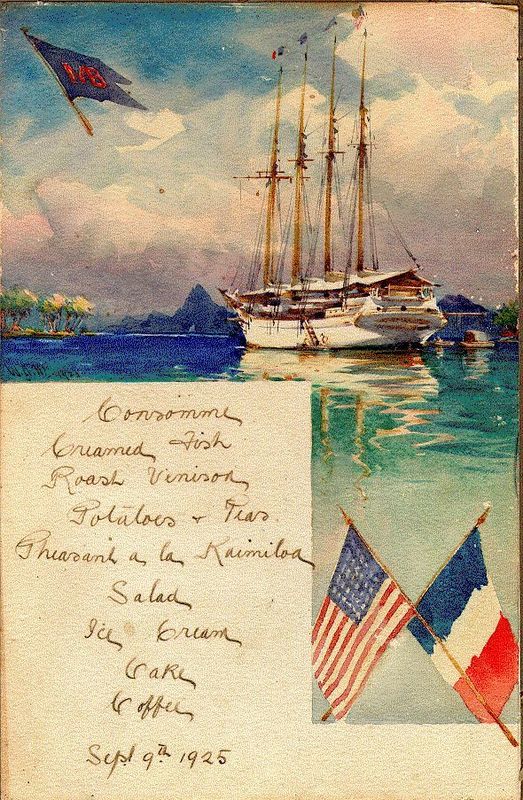 MB
Consomme
Creamed Fish
Roast Venison
Potatoes + Peas.
Pheasant a la Kaimiloa
Salad
Ice Cream
Cake
Coffee
Sept 9th 1925